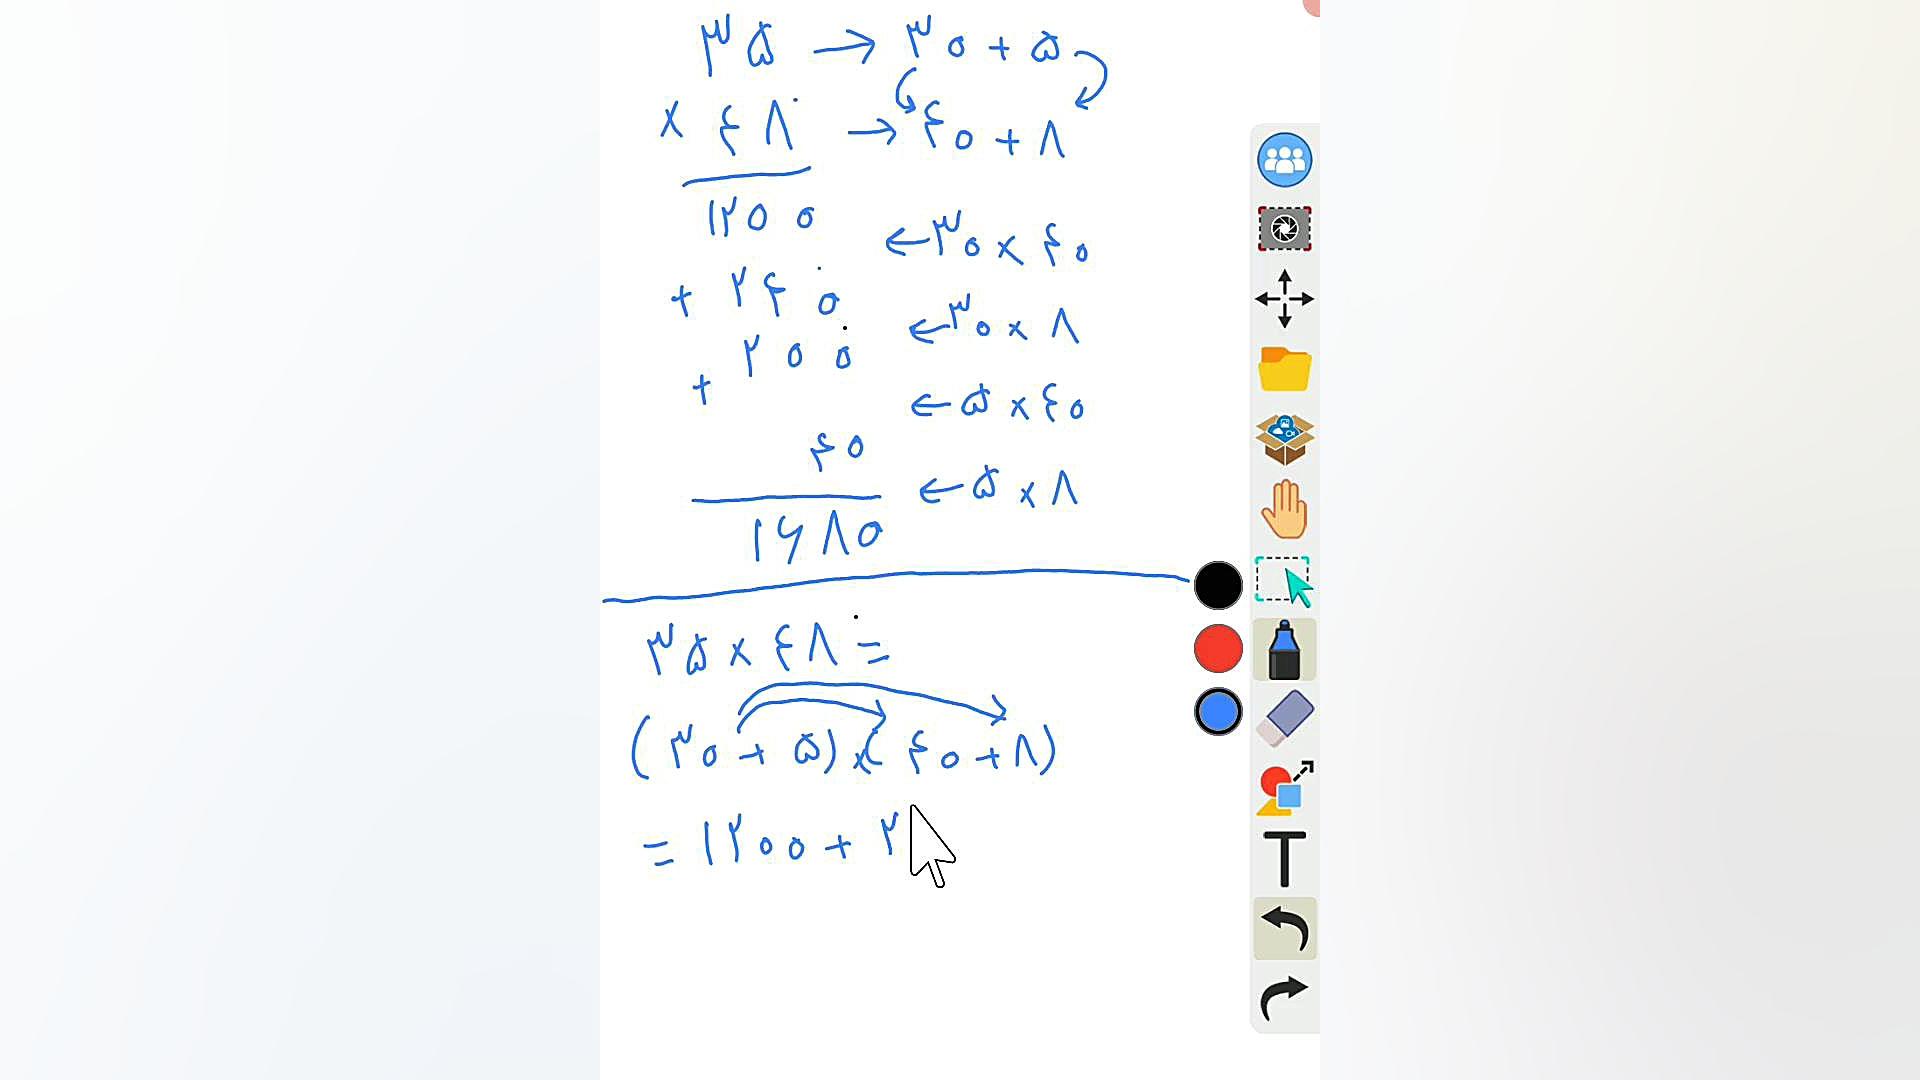 ۳۵ → ۳۰ + ۵
× ۴۸ → ۴۰ + ۸
۱۲۰۰ ← ۳۰ × ۴۰
+ ۲۴۰ ← ۳۰ × ۸
+ ۲۰۰ ← ۵ × ۴۰
۴۰ ← ۵ × ۸
۱۶۸۰
۳۵ × ۴۸ =
(۳۰ + ۵) × (۴۰ + ۸)
= ۱۲۰۰ + ۲